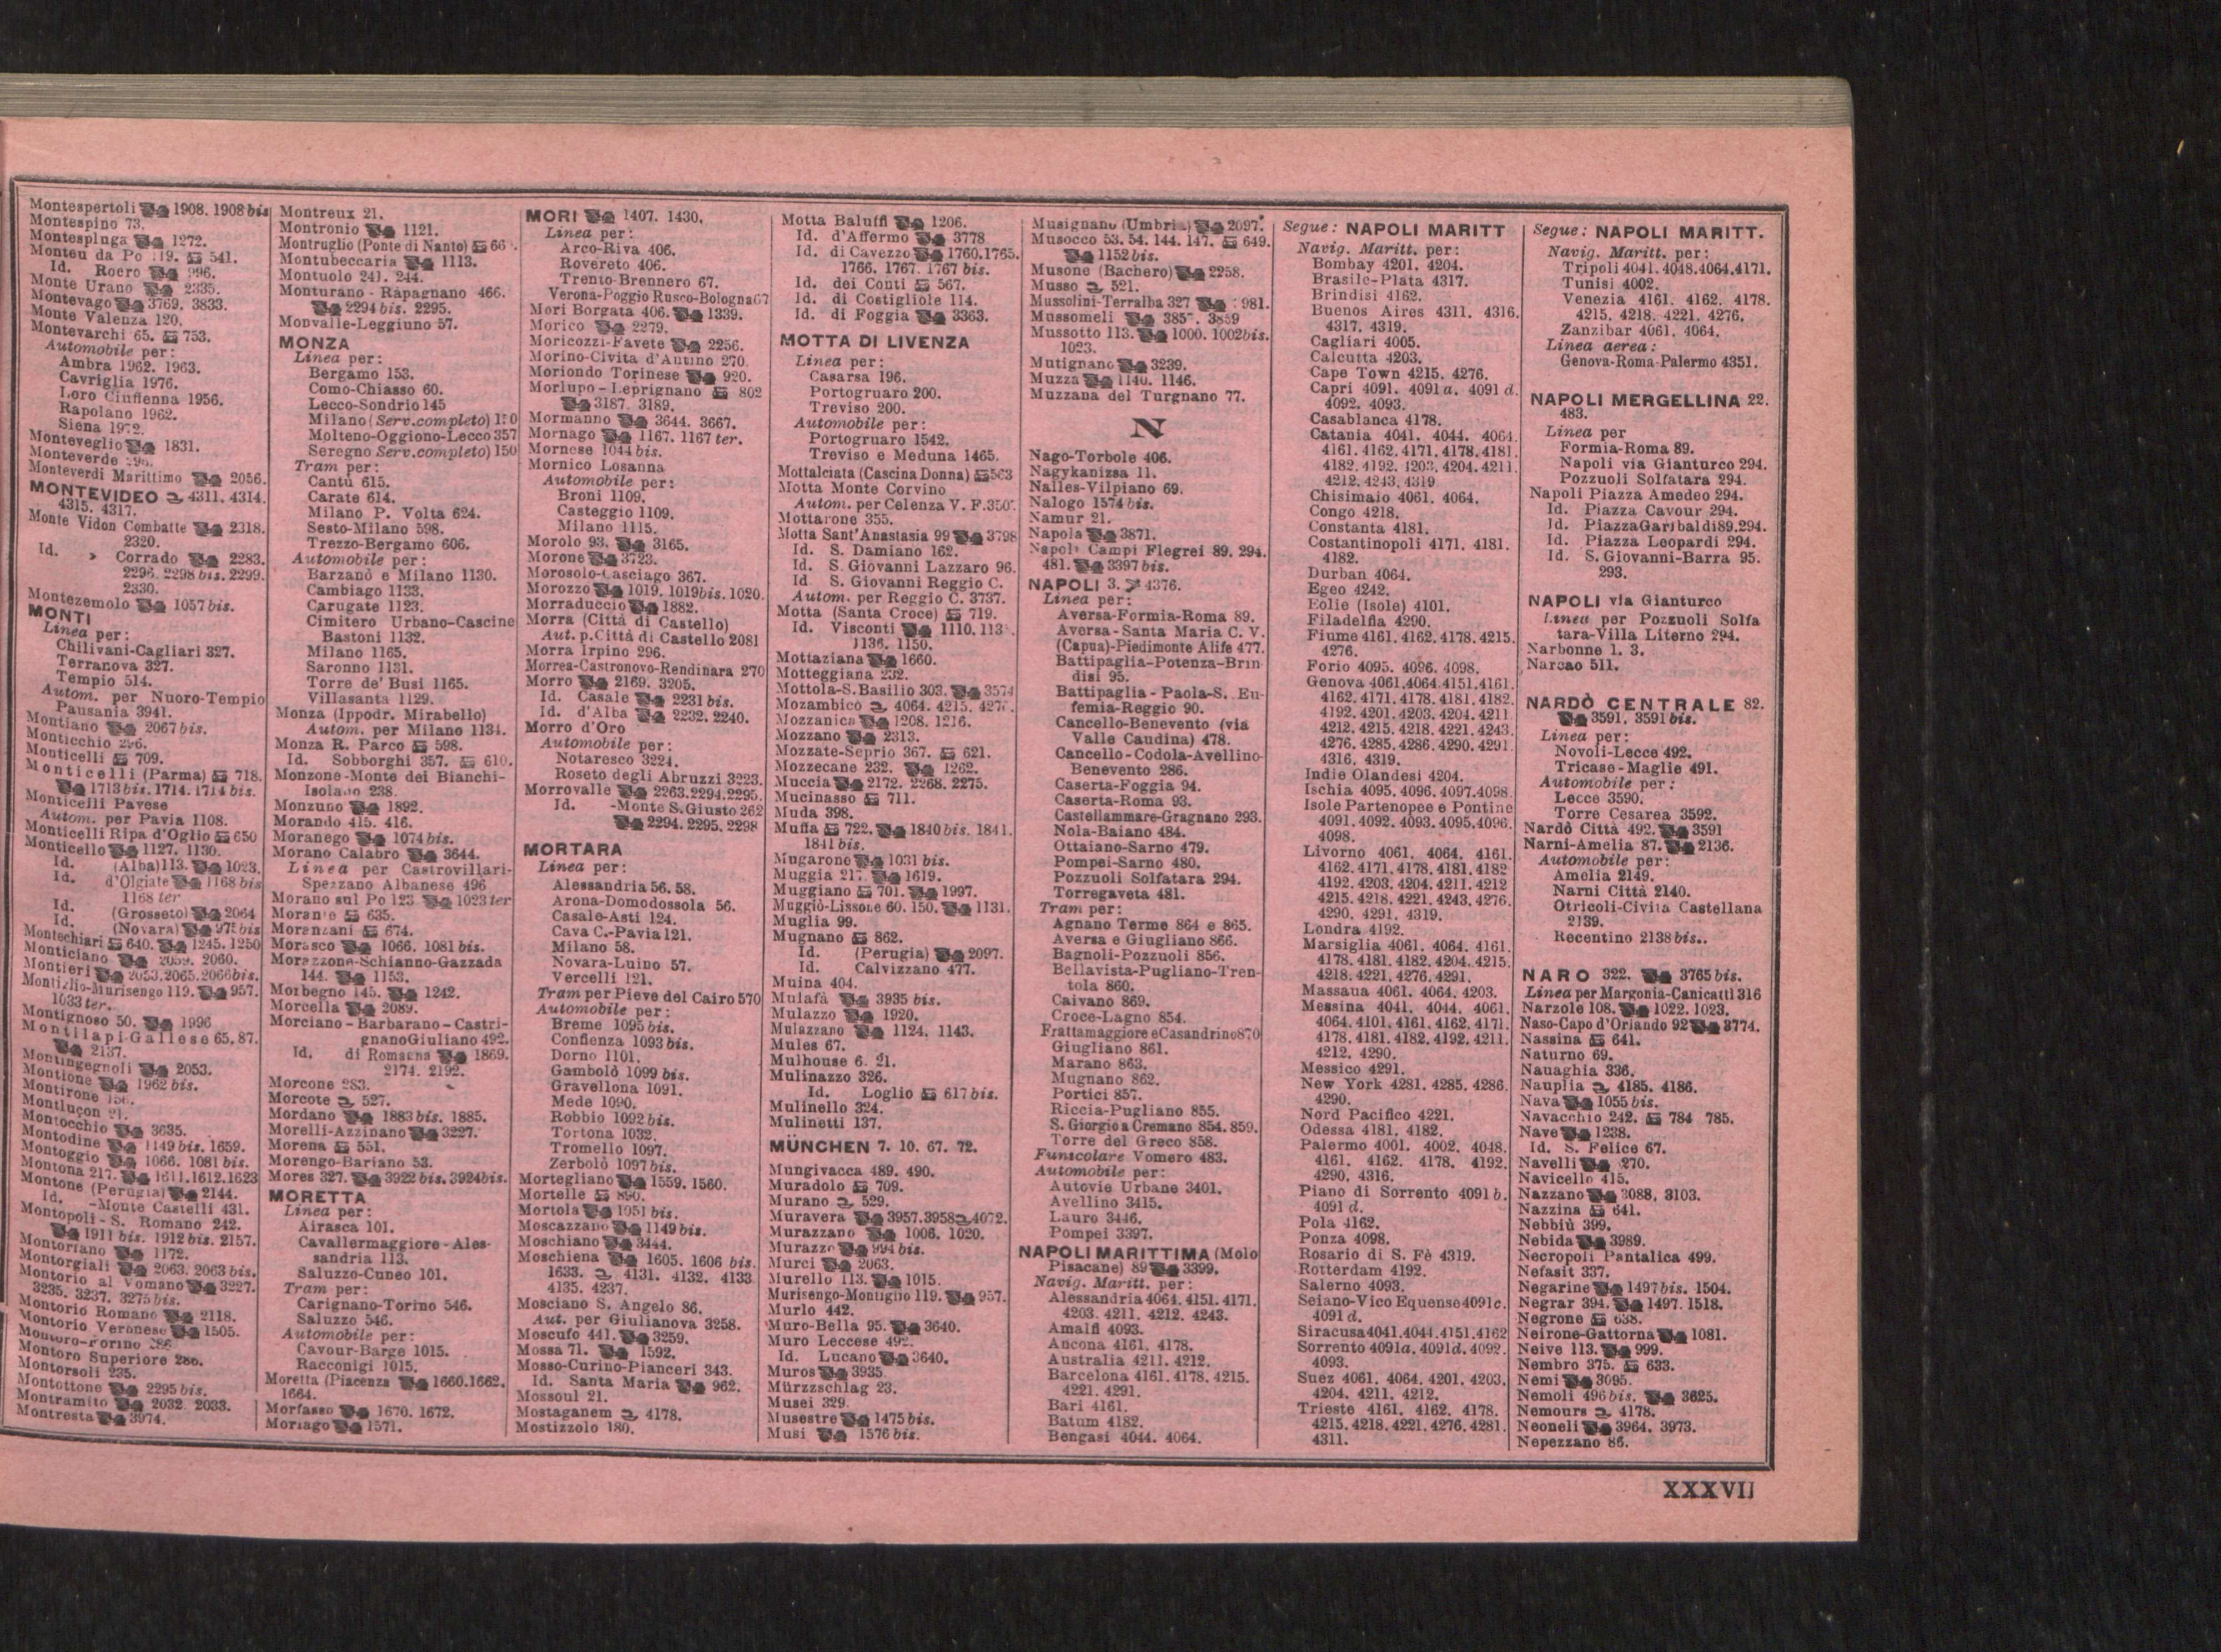 Montespertoli 1908. 1908 bis
Montespino 73.
Montespluga 1272.
Monteu da Po 119. 541.
Id. Roero 996.
Monte Urano 2335.
Montevago 3769. 3833.
Monte Valenza 120.
Montevarchi 65. 753.
Automobile per:
Ambra 1962. 1963.
Cavriglia 1976.
Loro Ciuffenna 1956.
Rapolano 1962.
Siena 1972.
Monteveglio 1831.
Monteverde
Monteverdi Marittimo 2056.
MONTEVIDEO 4311. 4314.
4315. 4317.
Monte Vidon Combatte 2318.
2320.
Id. » Corrado 2283.
2296. 2298 bis. 2299.
2330.
Montezemolo 1057 bis.
MONTI
Linea per:
Chilivani-Cagliari 327.
Terranova 327.
Tempio 514.
Autom. per Nuoro-Tempio
Pausania 3941.
Montiano 2067 bis.
Monticchio 296.
Monticelli 709.
Monticelli (Parma) 718.
1713 bis. 1714. 1714 bis.
Monticelli Pavese
Autom. per Pavia 1108.
Monticelli Ripa d'Oglio 650
Monticello 1127. 1130.
Id. (Alba) 113. 1023.
Id. d'Olgiate 1168 bis
1168 ter
Id. (Grosseto) 2064
Id. (Novara) bis
Montechiari 640. 1245. 1250
Monticiano 2059. 2060.
Montieri 2053. 2065. 2066 bis.
Montiglio-Murisengo 119. 957.
1033 ter.
Montignoso 50. 1996
Montilapi-Gallese 65. 87.
2137.
Montingegnoli 2053.
Montione 1962 bis.
Montirone 156.
Montluçon 21.
Montocchio 3635.
Montodine 1149 bis. 1659.
Montoggio 1066. 1081 bis.
Montona 217. 1611. 1612. 1623
Montone (Perugia) 2144.
Id. -Monte Castelli 431.
Montopoli - S. Romano 242.
1911 bis. 1912 bis. 2157.
Montorfano 1172.
Montorgiali 2063. 2063 bis.
Montorio al Vomano 3227.
3235. 3237. 3275 bis.
Montorio Romano 2118.
Montorio Veronese 1505.
Montoro-Forino 286
Montoro Superiore 286.
Montorsoli 235.
Montottone 2295 bis.
Montramito 2032. 2033.
Montresta 3974.
Montreux 21.
Montronio 1121.
Montruglio (Ponte di Nanto)
Montubeccaria 1113.
Montuolo 241. 244.
Monturano - Rapagnano 466.
2294 bis. 2295.
Monvalle-Leggiuno 57.
MONZA
Linea per:
Bergamo 153.
Como-Chiasso 60.
Lecco-Sondrio 145
Milano (Serv. completo) 150
Molteno-Oggiono-Lecco 357
Seregno Serv. completo) 150
Tram per:
Cantù 615.
Carate 614.
Milano P. Volta 624.
Sesto-Milano 598.
Trezzo-Bergamo 606.
Automobile per:
Barzanò e Milano 1130.
Cambiago 1133.
Carugate 1123.
Cimitero Urbano-Cascine
Bastoni 1132.
Milano 1165.
Saronno 1131.
Torre de' Busi 1165.
Villasanta 1129.
Monza (Ippodr. Mirabello)
Autom. per Milano 1134.
Monza R. Parco 598.
Id. Sobborghi 357. 610.
Monzone-Monte dei Bianchi-
Isolano 238.
Monzuno 1892.
Morando 415. 416.
Moranego 1074 bis.
Morano Calabro 3644.
Linea per Castrovillari-
Spezzano Albanese 496
Morano sul Po 123. 1023 ter
Morante 635.
Moranzani 674.
Morasco 1066. 1081 bis.
Morazzone-Schianno-Gazzada
144. 1153.
Morbegno 145. 1242.
Morcella 2089.
Morciano - Barbarano - Castri-
gnano Giuliano 492.
Id. di Romagna 1869.
2174. 2192.
Morcone 283.
Morcote 527.
Mordano 1883 bis. 1885.
Morelli-Azzinano 3227.
Morena 551.
Morengo-Bariano 53.
Mores 327. 3922 bis. 3924 bis.
MORETTA
Linea per:
Airasca 101.
Cavallermaggiore - Ales-
sandria 113.
Saluzzo-Cuneo 101.
Tram per:
Carignano-Torino 546.
Saluzzo 546.
Automobile per:
Cavour-Barge 1015.
Racconigi 1015.
Moretta (Piacenza 1660. 1662.
1664.
Morfasso 1670. 1672.
Moriago 1571.
MORI 1407. 1430.
Linea per:
Arco-Riva 406.
Rovereto 406.
Trento-Brennero 67.
Verona-Poggio Rusco-Bologna 67
Mori Borgata 406. 1339.
Morico 2279.
Moricozzi-Favete 2256.
Morino-Civita d'Antino 270.
Moriondo Torinese 920.
Morlupo - Leprignano 802
3187. 3189.
Mormanno 3644. 3667.
Mornago 1167. 1167 ter.
Mornese 1044 bis.
Mornico Losanna
Automobile per:
Broni 1109.
Casteggio 1109.
Milano 1115.
Morolo 93. 3165.
Morone 3723.
Morosolo-Casciago 367.
Morozzo 1019. 1019 bis. 1020.
Morraduccio 1882.
Morra (Città di Castello)
Aut. p. Città di Castello 2081
Morra Irpino 296.
Morrea-Castronovo-Rendinara 270
Morro 2169. 3205.
Id. Casale 2231 bis.
Id. d'Alba 2232. 2240.
Morro d'Oro
Automobile per:
Notaresco 3224.
Roseto degli Abruzzi 3223.
Morrovalle 2263. 2294. 2295.
Id. -Monte S. Giusto 262
2294. 2295. 2298
MORTARA
Linea per:
Alessandria 56. 58.
Arona-Domodossola 56.
Casale-Asti 124.
Cava C.-Pavia 121.
Milano 58.
Novara-Luino 57.
Vercelli 121.
Tram per Pieve del Cairo 570
Automobile per:
Breme 1095 bis.
Confienza 1093 bis.
Dorno 1101.
Gambolò 1099 bis.
Gravellona 1091.
Mede 1090.
Robbio 1092 bis.
Tortona 1032.
Tromello 1097.
Zerbolò 1097 bis.
Mortegliano 1559. 1560.
Mortelle 890.
Mortola 1051 bis.
Moscazzano 1149 bis.
Moschiano 3444.
Moschiena 1605. 1606 bis.
1633. 4131. 4132. 4133
4135. 4237.
Mosciano S. Angelo 86.
Aut. per Giulianova 3258.
Moscufo 441. 3259.
Mossa 71. 1592.
Mosso-Curino-Pianceri 343.
Id. Santa Maria 962.
Mossoul 21.
Mostaganem 4178.
Mostizzolo 180.
Motta Baluffi 1206.
Id. d'Affermo 3778
Id. di Cavezzo 1760. 1765.
1766. 1767. 1767 bis.
Id. dei Conti 567.
Id. di Costigliole 114.
Id. di Foggia 3363.
MOTTA DI LIVENZA
Linea per:
Casarsa 196.
Portogruaro 200.
Treviso 200.
Automobile per:
Portogruaro 1542.
Treviso e Meduna 1465.
Mottalciata (Cascina Donna) 563
Motta Monte Corvino
Autom. per Celenza V. F.
Mottarone 355.
Motta Sant'Anastasia 99 3798
Id. S. Damiano 162.
Id. S. Giovanni Lazzaro 96.
Id S. Giovanni Reggio C.
Autom. per Reggio C. 3737.
Motta (Santa Croce) 719.
Id. Visconti 1110.
1136. 1150.
Mottaziana 1660.
Motteggiana 232.
Mottola-S. Basilio 303. 3574
Mozambico 4064. 4215. 4276.
Mozzanica 1208. 1216.
Mozzano 2313.
Mozzate-Seprio 367. 621.
Mozzecane 232. 1262.
Muccia 2172. 2268. 2275.
Mucinasso 711.
Muda 398.
Muffa 722. 1840 bis. 1841.
1841 bis.
Mugarone 1031 bis.
Muggia 217. 1619.
Muggiano 701. 1997.
Muggiò-Lissone 60. 150. 1131.
Muglia 99.
Mugnano 862.
Id. (Perugia) 2097.
Id. Calvizzano 477.
Muina 404.
Mulafà 3935 bis.
Mulazzo 1920.
Mulazzano 1124. 1143.
Mules 67.
Mulhouse 6. 21.
Mulinazzo 326.
Id. Loglio 617 bis.
Mulinello 324.
Mulinetti 137.
MÜNCHEN 7. 10. 67. 72.
Mungivacca 489. 490.
Muradolo 709.
Murano 529.
Muravera 3957. 3958 4072.
Murazzano 1006. 1020.
Murazzo 994 bis.
Murci 2063.
Murello 113. 1015.
Murisengo-Montiglio 119. 957.
Murlo 442.
Muro-Bella 95. 3640.
Muro Leccese 492.
Id. Lucano 3640.
Muros 3935.
Mürzzschlag 23.
Musei 329.
Musestre 1475 bis.
Musi 1576 bis.
Musignano (Umbria) 2097.
Musocco 53. 54. 144. 147. 649.
1152 bis.
Musone (Bachero) 2258.
Musso 521.
Mussolini-Terralba 327 981.
Mussomeli 3859
Mussotto 113. 1000. 1002 bis.
1023.
Mutignano 3239.
Muzza 1140. 1146.
Muzzana del Turgnano 77.
N
Nago-Torbole 406.
Nagykanizsa 11.
Nalles-Vilpiano 69.
Nalogo 1574 bis.
Namur 21.
Napola 3871.
Napoli Campi Flegrei 89. 294.
481. 3397 bis.
NAPOLI 3. 4376.
Linea per:
Aversa-Formia-Roma 89.
Aversa - Santa Maria C. V.
(Capua)-Piedimonte Alife 477.
Battipaglia-Potenza-Brin
disi 95.
Battipaglia - Paola-S. Eu-
femia-Reggio 90.
Cancello-Benevento (via
Valle Caudina) 478.
Cancello - Codola-Avellino-
Benevento 286.
Caserta-Foggia 94.
Caserta-Roma 93.
Castellammare-Gragnano 293.
Nola-Baiano 484.
Ottaiano-Sarno 479.
Pompei-Sarno 480.
Pozzuoli Solfatara 294.
Torregaveta 481.
Tram per:
Agnano Terme 864 e 865.
Aversa e Giugliano 866.
Bagnoli-Pozzuoli 856.
Bellavista-Pugliano-Tren-
tola 860.
Caivano 869.
Croce-Lagno 854.
Frattamaggiore e Casandrino 870
Giugliano 861.
Marano 863.
Mugnano 862.
Portici 857.
Riccia-Pugliano 855.
S. Giorgio a Cremano 854. 859.
Torre del Greco 858.
Funicolare Vomero 483.
Automobile per:
Autovie Urbane 3401.
Avellino 3415.
Lauro 3446.
Pompei 3397.
NAPOLI MARITTIMA (Molo
Pisacane) 89 3399.
Navig. Maritt. per:
Alessandria 4064. 4151. 4171.
4203. 4211. 4212. 4243.
Amalfi 4093.
Ancona 4161. 4178.
Australia 4211. 4212.
Barcelona 4161. 4178. 4215.
4221. 4291.
Bari 4161.
Batum 4182.
Bengasi 4044. 4064.
Segue: NAPOLI MARITT
Navig. Maritt. per:
Bombay 4201. 4204.
Brasile-Plata 4317.
Brindisi 4162.
Buenos Aires 4311. 4316.
4317. 4319.
Cagliari 4005.
Calcutta 4203.
Cape Town 4215. 4276.
Capri 4091. 4091 a. 4091 d.
4092. 4093.
Casablanca 4178.
Catania 4041. 4044. 4064.
4161. 4162. 4171. 4178. 4181.
4182. 4192. 4203. 4204. 4211.
4212. 4243. 4319
Chisimaio 4061. 4064.
Congo 4218.
Constanta 4181.
Costantinopoli 4171. 4181.
4182.
Durban 4064.
Egeo 4242.
Eolie (Isole) 4101.
Filadelfia 4290.
Fiume 4161. 4162. 4178. 4215.
4276.
Forio 4095. 4096. 4098.
Genova 4061. 4064. 4151. 4161.
4162. 4171. 4178. 4181. 4182.
4192. 4201. 4203. 4204. 4211
4212. 4215. 4218. 4221. 4243.
4276. 4285. 4286. 4290. 4291.
4316. 4319.
Indie Olandesi 4204.
Ischia 4095. 4096. 4097. 4098.
Isole Partenopee e Pontine
4091. 4092. 4093. 4095. 4096.
4098.
Livorno 4061. 4064. 4161.
4162. 4171. 4178. 4181. 4182
4192. 4203. 4204. 4211. 4212
4215. 4218. 4221. 4243. 4276.
4290. 4291. 4319.
Londra 4192.
Marsiglia 4061. 4064. 4161.
4178. 4181. 4182. 4204. 4215.
4218. 4221. 4276. 4291.
Massaua 4061. 4064. 4203.
Messina 4041. 4044. 4061.
4064. 4101. 4161. 4162. 4171.
4178. 4181. 4182. 4192. 4211.
4212. 4290.
Messico 4291.
New York 4281. 4285. 4286.
4290.
Nord Pacifico 4221.
Odessa 4181. 4182.
Palermo 4001. 4002. 4048.
4161. 4162. 4178. 4192.
4290. 4316.
Piano di Sorrento 4091 b.
4091 d.
Pola 4162.
Ponza 4098.
Rosario di S. Fè 4319.
Rotterdam 4192.
Salerno 4093.
Seiano-Vico Equense 4091 c.
4091 d.
Siracusa 4041. 4044. 4151. 4162
Sorrento 4091a. 4091d. 4092.
4093.
Suez 4061. 4064. 4201. 4203.
4204. 4211. 4212.
Trieste 4161. 4162. 4178.
4215. 4218. 4221. 4276. 4281
4311.
Segue: NAPOLI MARITT.
Navig. Maritt. per:
Tripoli 4041. 4048. 4064. 4171.
Tunisi 4002.
Venezia 4161. 4162. 4178.
4215. 4218. 4221. 4276.
Zanzibar 4061. 4064.
Linea aerea:
Genova-Roma-Palermo 4351.
NAPOLI MERGELLINA 22.
483.
Linea per
Formia-Roma 89.
Napoli via Gianturco 294.
Pozzuoli Solfatara 294.
Napoli Piazza Amedeo 294.
Id. Piazza Cavour 294.
Id. Piazza Garibaldi 89. 294.
Id. Piazza Leopardi 294.
Id. S. Giovanni-Barra 95.
293.
NAPOLI via Gianturco
Linea per Pozzuoli Solfa
tara-Villa Literno 294.
Narbonne 1. 3.
Narcao 511.
NARDÒ CENTRALE 82.
3591. 3591 bis.
Linea per:
Novoli-Lecce 492.
Tricase-Maglie 491.
Automobile per:
Lecce 3590.
Torre Cesarea 3592.
Nardò Città 492. 3591
Narni-Amelia 87. 2136.
Automobile per:
Amelia 2149.
Narni Città 2140.
Otricoli-Civita Castellana
2139.
Recentino 2138 bis..
NARO 322. 3765 bis.
Linea per Margonia-Canicattì 316
Narzole 108. 1022. 1023.
Naso-Capo d'Orlando 92 3774.
Nassina 641.
Naturno 69.
Nauaghia 336.
Nauplia 4185. 4186.
Nava 1055 bis.
Navacchio 242. 784 785.
Nave 1238.
Id. S. Felice 67.
Navelli 270.
Navicello 415.
Nazzano 3088. 3103.
Nazzina 641.
Nebbiù 399.
Nebida 3989.
Necropoli Pantalica 499.
Nefasit 337.
Negarine 1497 bis. 1504.
Negrar 394. 1497. 1518.
Negrone 638.
Neirone-Gattorna 1081.
Neive 113. 999.
Nembro 375. 633.
Nemi 3095.
Nemoli 496 bis. 3625.
Nemours 4178.
Neoneli 3964. 3973.
Nepezzano 86.
XXXVII